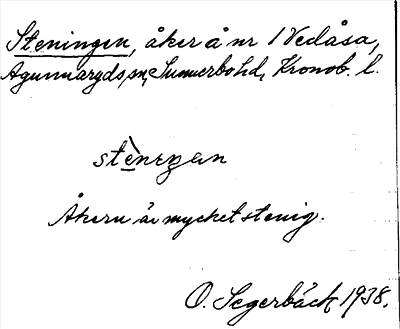 Steningen, åker å nr 1 Vedåsa,
Agunnaryds sn, Sunnerbo hd, Kronob. l.
stè̱nıŋan
Åkern är mycket stenig.
O. Segerbäck 1938.